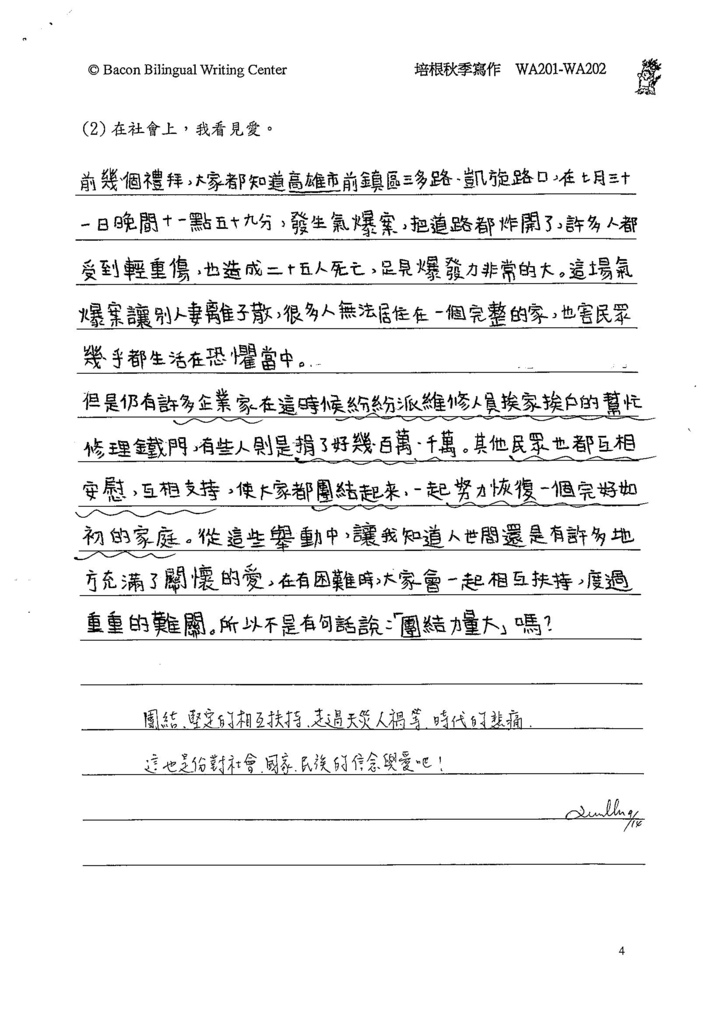 © Bacon Bilingual Writing Center 培根秋季寫作 WA201-WA202
(2) 在社會上，我看見愛。
前幾個禮拜，大家都知道高雄市前鎮區三多路、凱旋路口，在七月三十
一日晚間十一點五十九分，發生氣爆案，把道路都炸開了，許多人都
受到輕重傷，也造成二十五人死亡，足見爆發力非常的大。這場氣
爆案讓別人妻離子散，很多人無法居住在一個完整的家，也害民眾
幾乎都生活在恐懼當中。
但是仍有許多企業家在這時候紛紛派維修人員挨家挨戶的幫忙
修理鐵門，有些人則是捐了好幾百萬、千萬。其他民眾也都互相
安慰，互相支持，使大家都團結起來，一起努力恢復一個完好如
初的家庭。從這些舉動中，讓我知道人世間還是有許多地
方充滿了關懷的愛，在有困難時，大家會一起相互扶持，度過
重重的難關。所以不是有句話說：「團結力量大」嗎？
團結、堅定的相互扶持，走過天災人禍等，時代的悲痛，
這也是份對社會、國家、民族的信念與愛吧！
9/14
4